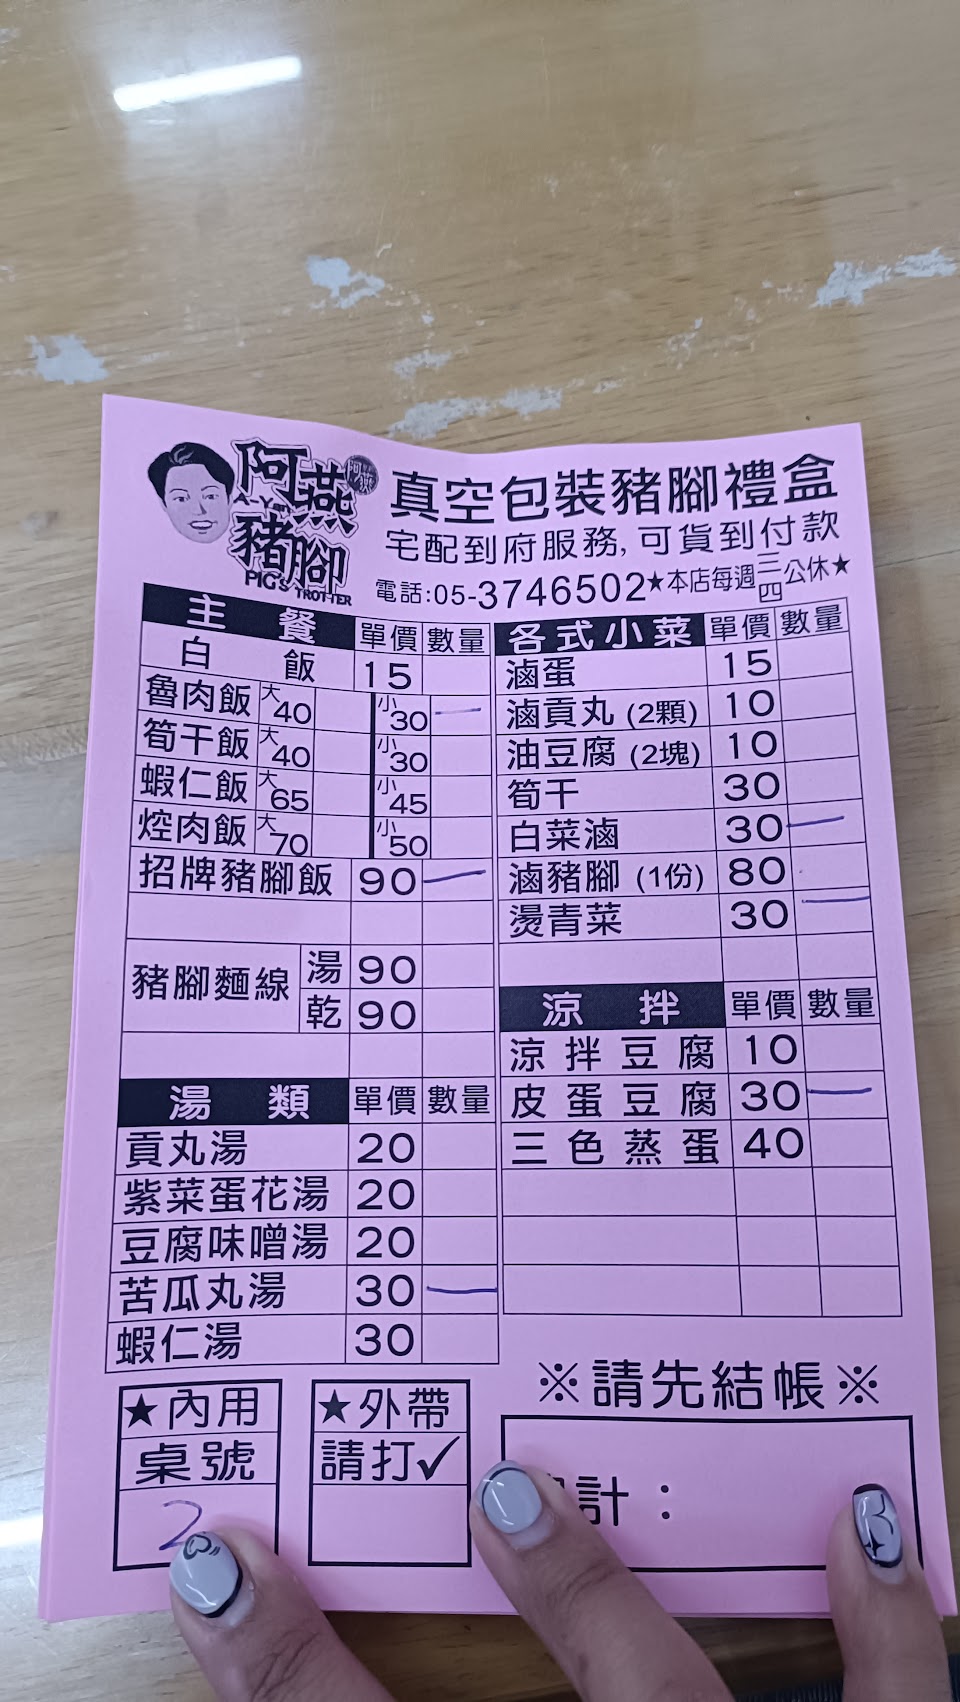 阿燕
豬腳
阿燕
PIG'S TROTTER
真空包裝豬腳禮盒
宅配到府服務,可貨到付款
電話:05-3746502★本店每週三四公休★
主餐 單價 數量
白飯 15
魯肉飯 大40 小30 一
筍干飯 大40 小30
蝦仁飯 大65 小45
焢肉飯 大70 小50
招牌豬腳飯 90 一
豬腳麵線 湯 90
乾 90
湯類 單價 數量
貢丸湯 20
紫菜蛋花湯 20
豆腐味噌湯 20
苦瓜丸湯 30 一
蝦仁湯 30
各式小菜 單價 數量
滷蛋 15
滷貢丸 (2顆) 10
油豆腐 (2塊) 10
筍干 30
白菜滷 30 一
滷豬腳 (1份) 80
燙青菜 30 一
涼拌 單價 數量
涼拌豆腐 10
皮蛋豆腐 30 一
三色蒸蛋 40
★內用
桌號
2
★外帶
請打✓
※請先結帳※
計: